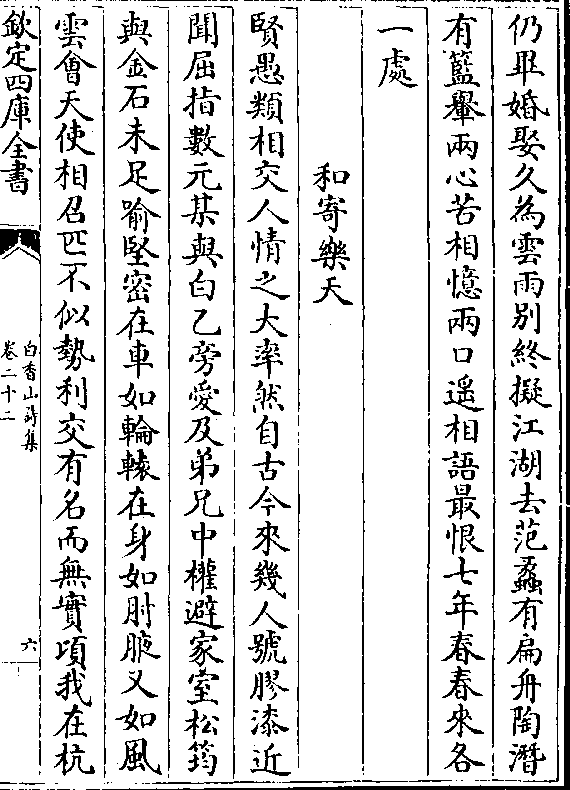 仍畢婚娶久為雲雨別終擬江湖去范蠡有扁舟陶潛
有籃轝兩心苦相憶兩口遥相語最恨七年春春來各
一處
和寄樂天
賢愚類相交人情之大率然自古今來幾人號膠漆近
聞屈指數元某與白乙旁愛及弟兄中權避家室松筠
與金石未足喻堅密在車如輪轅在身如肘腋又如風
雲會天使相召匹不似勢利交有名而無實頃我在杭
欽定四庫全書
白香山詩集
卷二十二
六